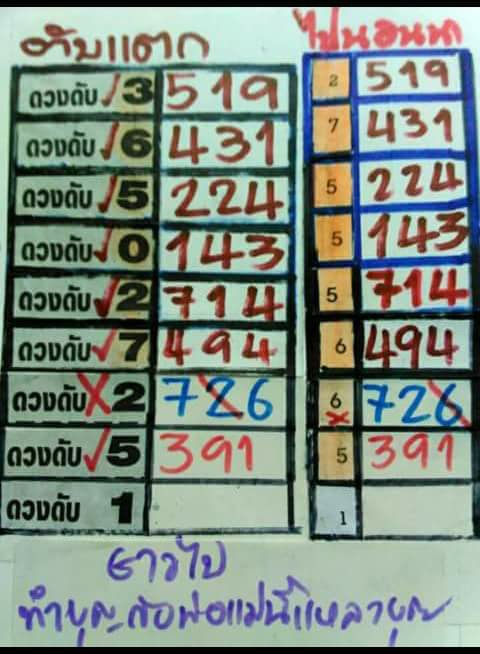 ดับแตก ไปนอนนา
ดวงดับ ✓ 3 519 2 519
ดวงดับ ✓ 6 431 7 431
ดวงดับ ✓ 5 224 5 224
ดวงดับ ✓ 0 143 5 143
ดวงดับ ✓ 2 714 5 714
ดวงดับ ✓ 7 494 6 494
ดวงดับ X 2 726 6 x 726
ดวงดับ ✓ 5 391 5 391
ดวงดับ 1 1
ยาวไป
ทำบุญต่อพ่อแม่นี้แหลวบุญ